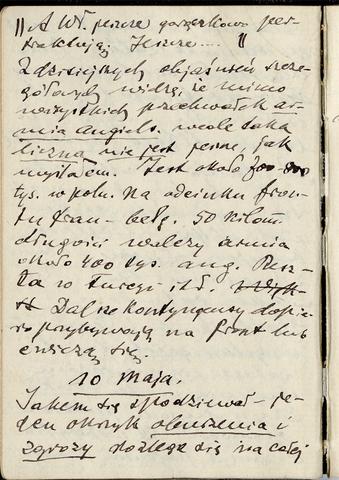 "A Wł. pisze gorączkowo per-
traktują; Jeszcze .... "
Z dzisiejszych objaśnień szcze-
gółowych widzę, że mimo
wszystkich przechwałek ar-
mia angiels. wcale taka
liczna nie jest jeszcze, jak
myślałem. Jest około
tys. w poln. Na odcinku fron-
tu fran-belg. 50 kilom.
długości walczy armia
około 400 tys. ang. Resz-
ta w Turcji itd.
Dalsze kontyngensy dopie-
ro przybywają na front lub
ćwiczą się.
10 maja.
Jakem się spodziewał - je-
den okrzyk oburzenia i
zgrozy rozlega się na całej